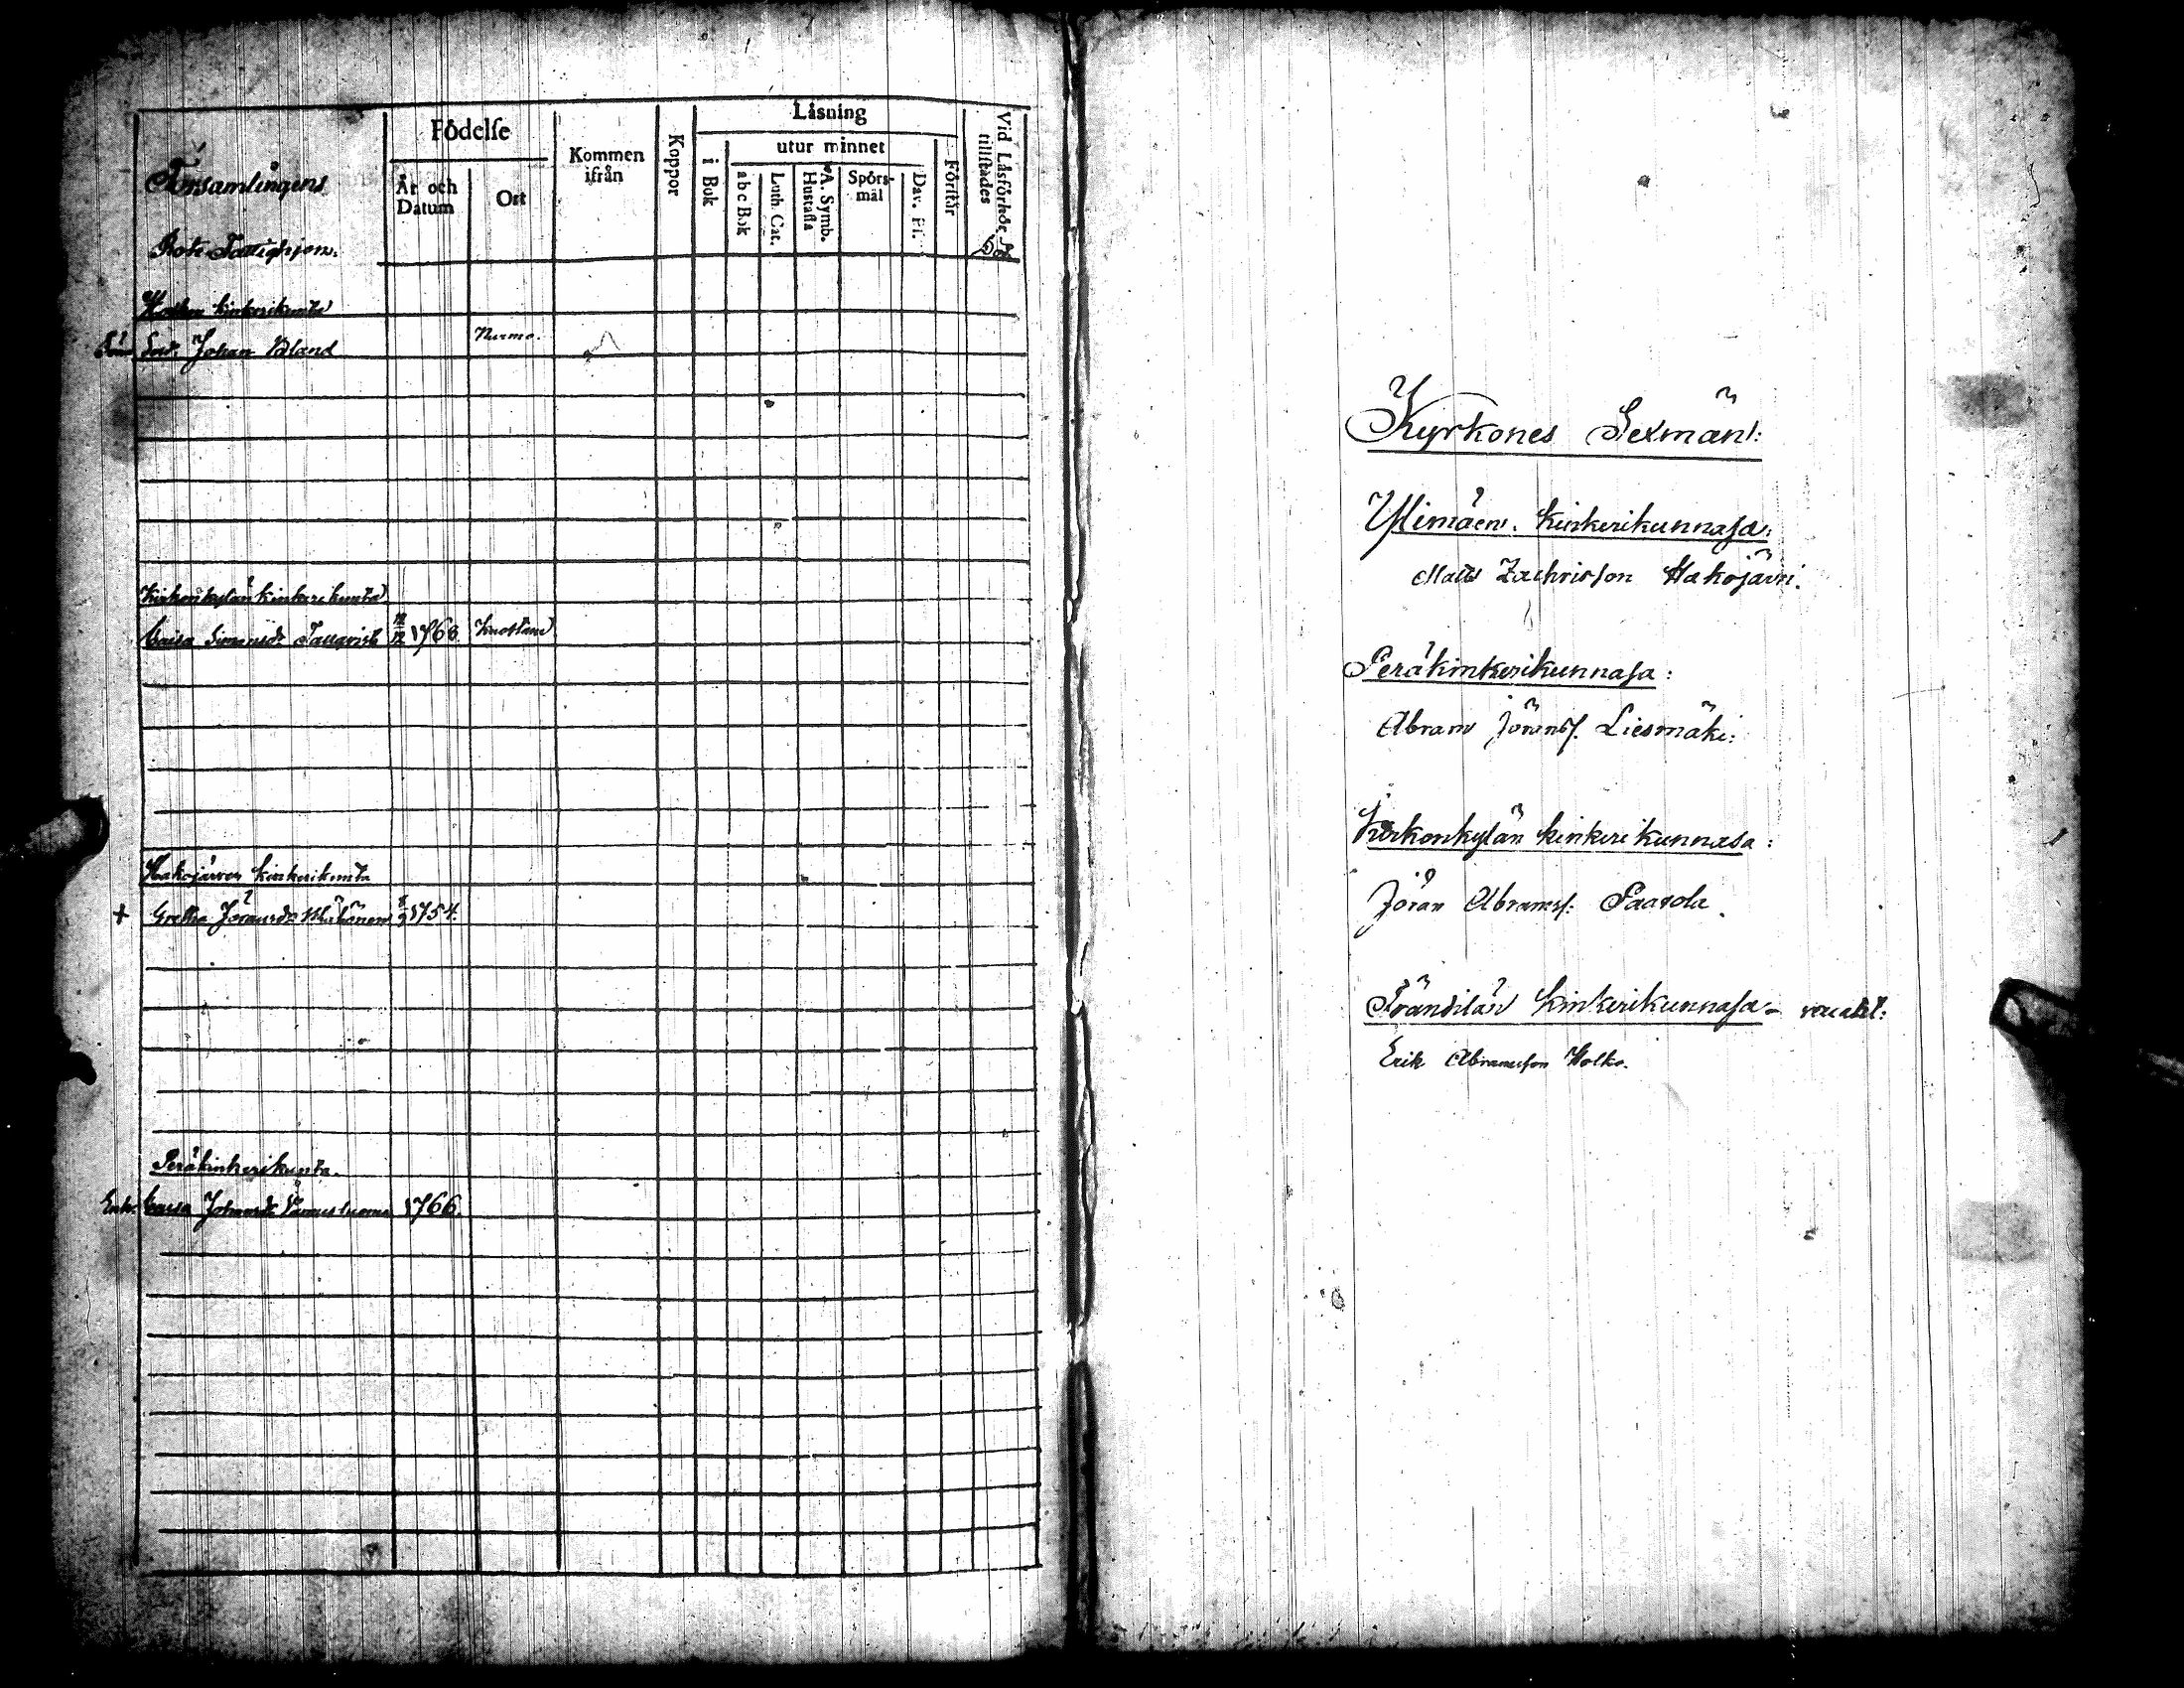 Församlingens
Rote Fattighjon.
Födelse
År och Datum
Ort
Kommen ifrån
Koppor
Låsning
i Bok
utur minnet
abc Bok
Luth. Cat.
A. Symb. Hustafla
Spörsmål
Dav. Ps.
Förstår
Vid Låsförhör tillstådes
kinkerikunta
Sold. Johan Bland Nurmo.
Kirkonkylän kinkerikunta
Caisa Simonsdr 12/12 1760
Hakojärven kinkerikunta
+ Gretha Jöransdr 1754.
Peräkinkerikunta.
Enk. Caisa Johansdr 1766.
Kyrkones Sexmän:
Ylimäen kinkerikunnasa:
Matts Zachrisson Hakojärvi.
Peräkinkerikunnasa:
Abram Jöranss. Liesmäki:
Kirkonkylän kinkerikunnasa:
Jöran Abramss: Paavola.
kinkerikunnasa -
Erik Abramsson Holko.